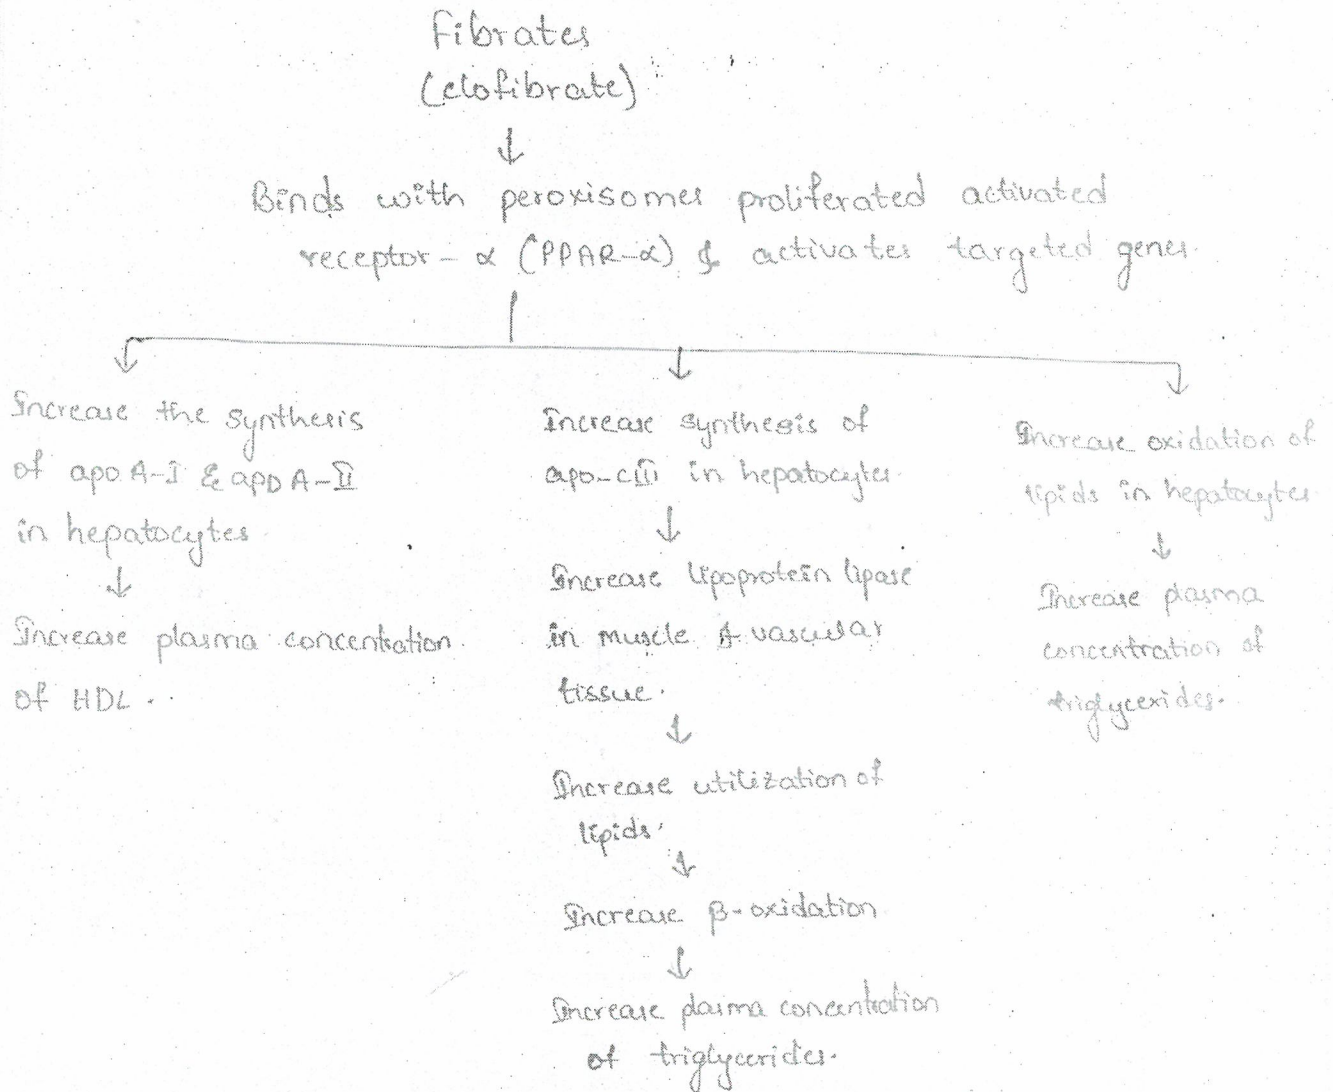 Fibrates
(clofibrate)
Binds with peroxisomes proliferated activated
receptor - α (PPAR-α) & activates targeted genes.
Increase the synthesis
of apo A-I & apo A-II
in hepatocytes.
Increase plasma concentration
of HDL.
Increase synthesis of
apo-cIII in hepatocytes.
Increase lipoprotein lipase
in muscle & vascular
tissue.
Increase utilization of
lipids.
Increase β-oxidation
Increase plasma concentration
of triglycerides.
Increase oxidation of
lipids in hepatocytes
Increase plasma
concentration of
triglycerides.